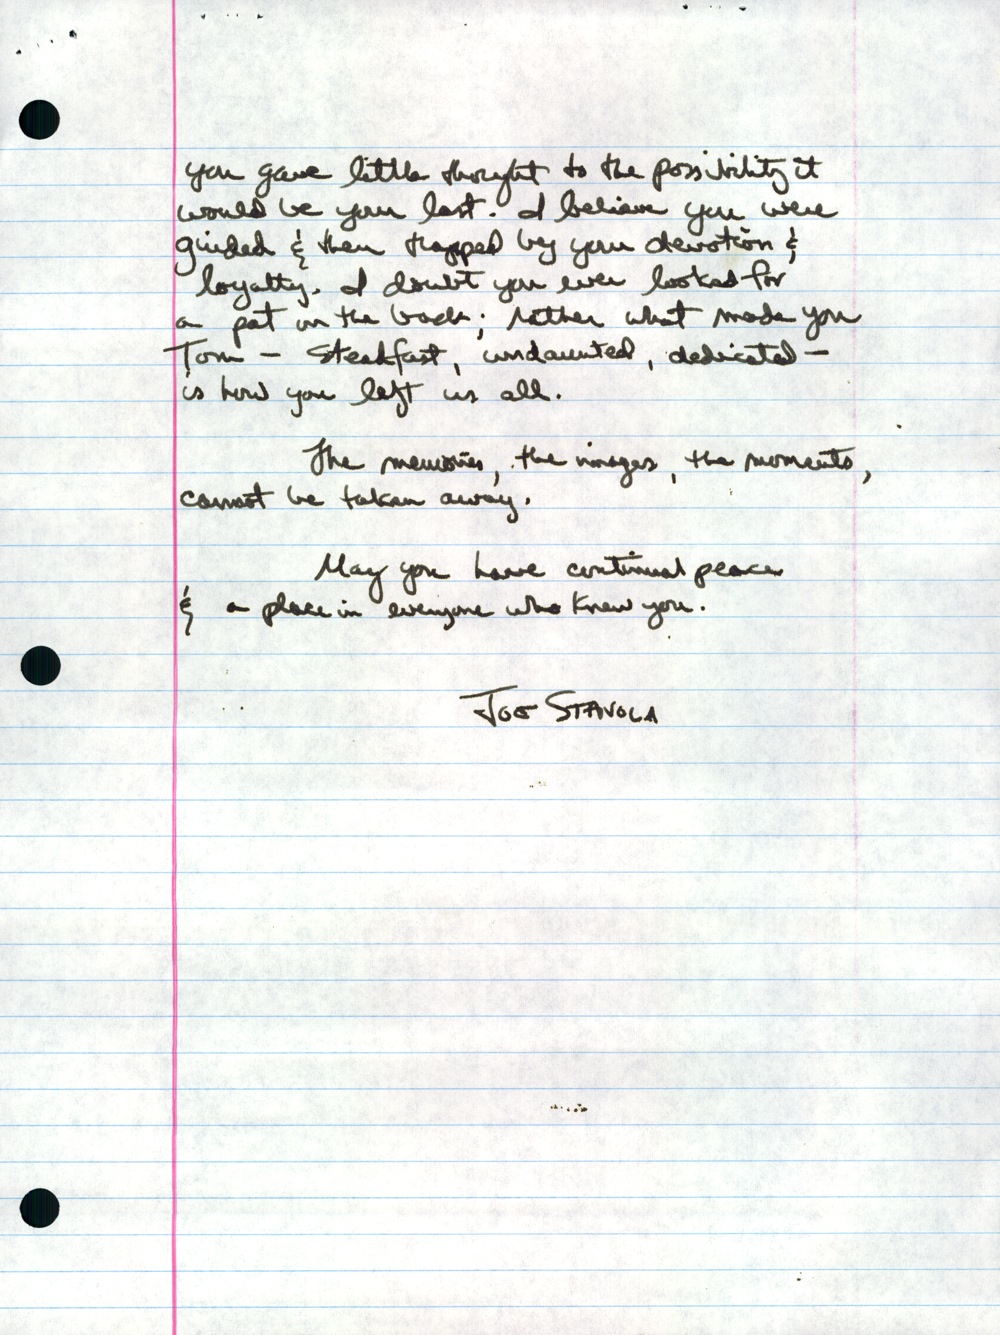 you gave little thought to the possibility it
would be your last. I believe you were
guided & then trapped by your devotion &
loyalty. I doubt you ever looked for
a pat on the back; rather what made you
Tom - steadfast, undaunted, dedicated -
is how you left us all.
The memories, the images, the moments,
cannot be taken away.
May you have continual peace
& a place in everyone who knew you.
JOE STAVOLA